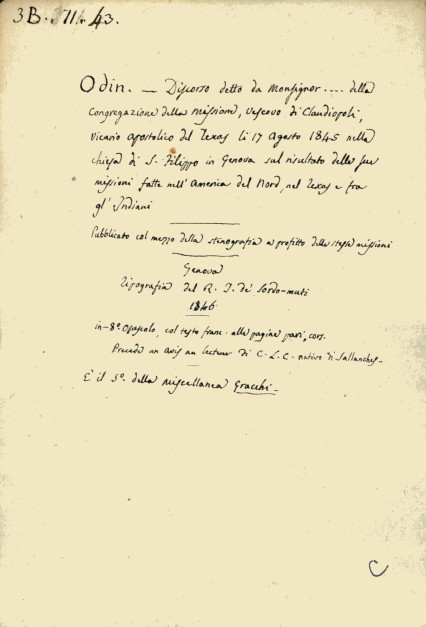 3B. 11. 43.
Odin. — Discorso detto da Monsignor .... della
Congregazione della Missione, vescovo di Claudiopoli,
vicario apostolico del Texas li 17 Agosto 1845 nella
chiesa di S. Filippo in Genova sul risultato delle sue
missioni fatte nell'America del Nord, nel Texas e fra
gl'Indiani
Pubblicato col mezzo della stenografia a profitto delle stesse missioni
Genova
Tipografia del R. I. de' Sordo-muti
1846
in-8º. Opuscolo, col testo franc. alle pagine pari, corr.
Precede un avis au lecteur di C. L. C. nativo di Sallanches.
È il 5º. della miscellanea Gracchi.
C